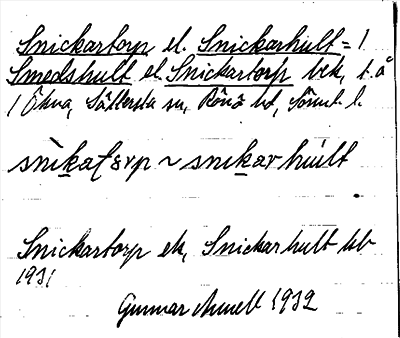 Snickartorp el. Snickarhult = 1
Smedshult el. Snickartorp bek, t. å
1 Ökna, Sättersta sn, Rönö hd, Södml. l.
snikatorp ~ snikarhult
Snickartorp ek, Snickarhult bb
1931
Gunnar 1932